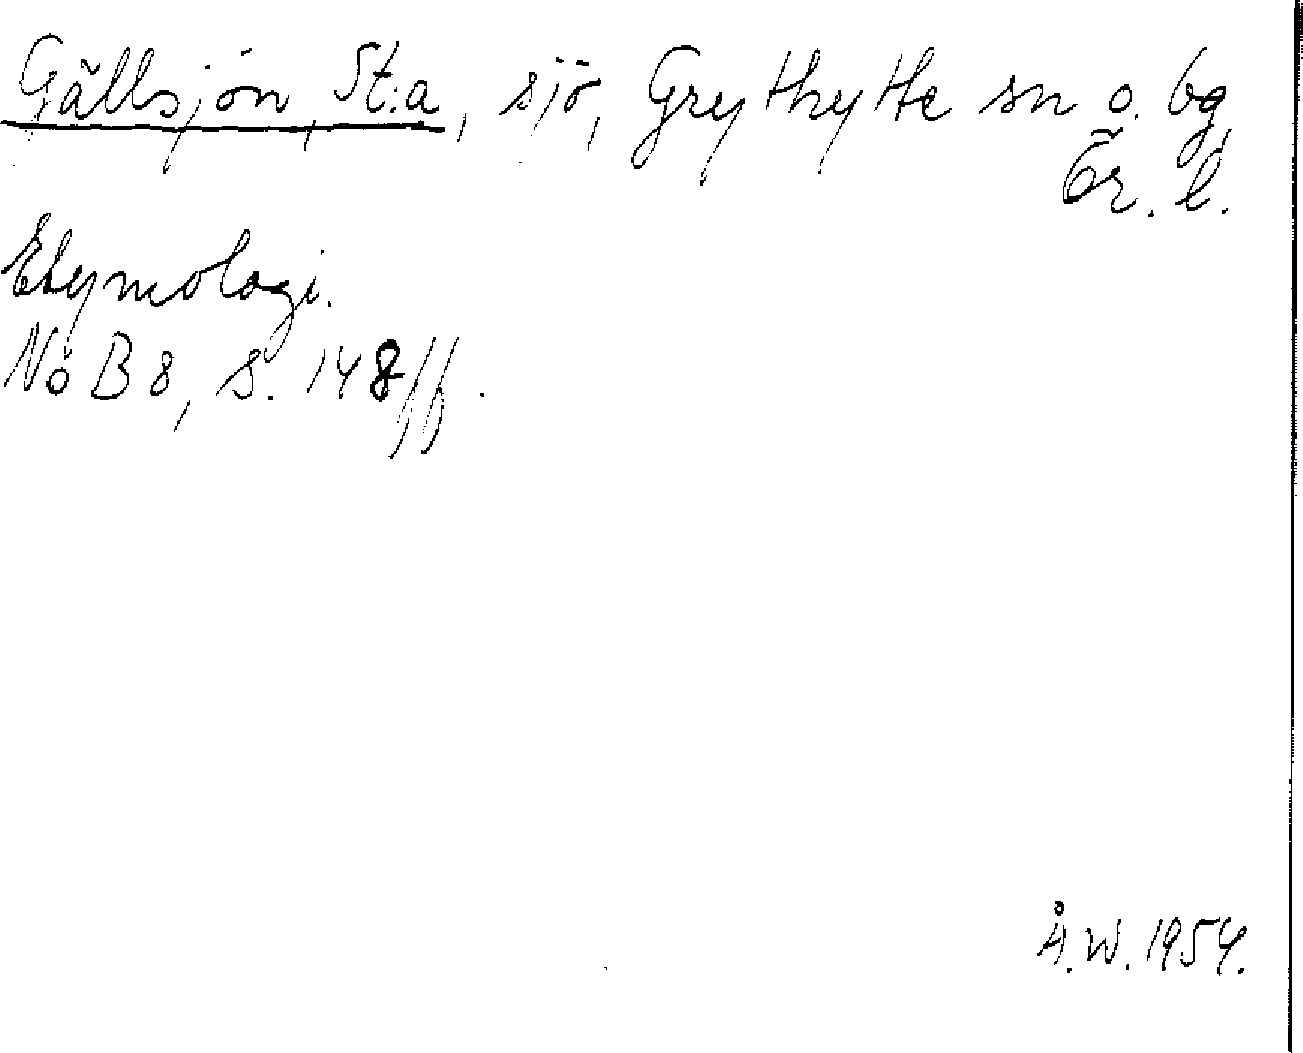 Gällsjön, St:a, sjö, Grythytte sn o. bg,
Ör. l.
Etymologi.
NoB 8, s. 148 ff.
Å.W. 1954.